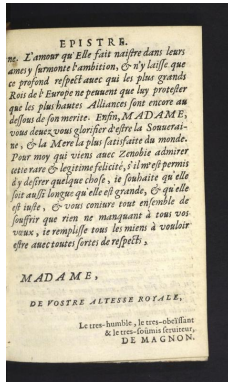 EPISTRE.
ne. L'amour qu'Elle fait naistre dans leurs
ames y surmonte l'ambition, & n'y laisse que
ce profond respect auec qui les plus grands
Rois de l'Europe ne peuuent que luy protester
que les plus hautes Alliances sont encore au
dessous de son merite. Enfin, MADAME,
vous deuez vous glorifier d'estre la Souuerai-
ne, & la Mere la plus satisfaite du monde.
Pour moy qui viens auec Zenobie admirer
cette rare & legitime felicité, s'il m'est permis
d'y desirer quelque chose, ie souhaite qu'elle
soit aussi longue qu'elle est grande, & qu'elle
est iuste, & vous coniure tout ensemble de
souffrir que rien ne manquant à tous vos
vœux, ie remplisse tous les miens à vouloir
estre auec toutes sortes de respects,
MADAME,
DE VOSTRE ALTESSE ROYALE,
Le tres-humble, le tres-obeïssant
& le tres-soûmis seruiteur,
DE MAGNON.